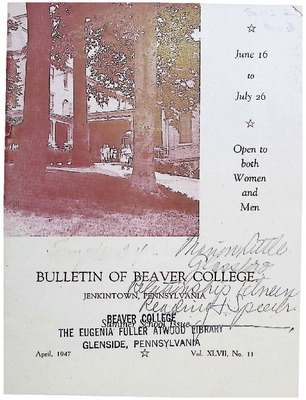 ☆
June 16
to
July 26
☆
Open to
both
Women
and
Men
Marion Little
BULLETIN OF BEAVER COLLEGE
JENKINTOWN, PENNSYLVANIA
Relationship between
Reading & Speech
Summer School Issue
BEAVER COLLEGE
THE EUGENIA FULLER ATWOOD LIBRARY
GLENSIDE, PENNSYLVANIA
April, 1947 ☆ Vol. XLVII, No. 11